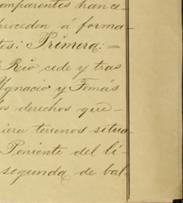 mparentes hance-
proceden á forma-
tes: Primera: =
Rio cede y tras
Ygnacio y Tomás
los derechos que-
iera terenos situa
Poniente del li-
segunda de bal